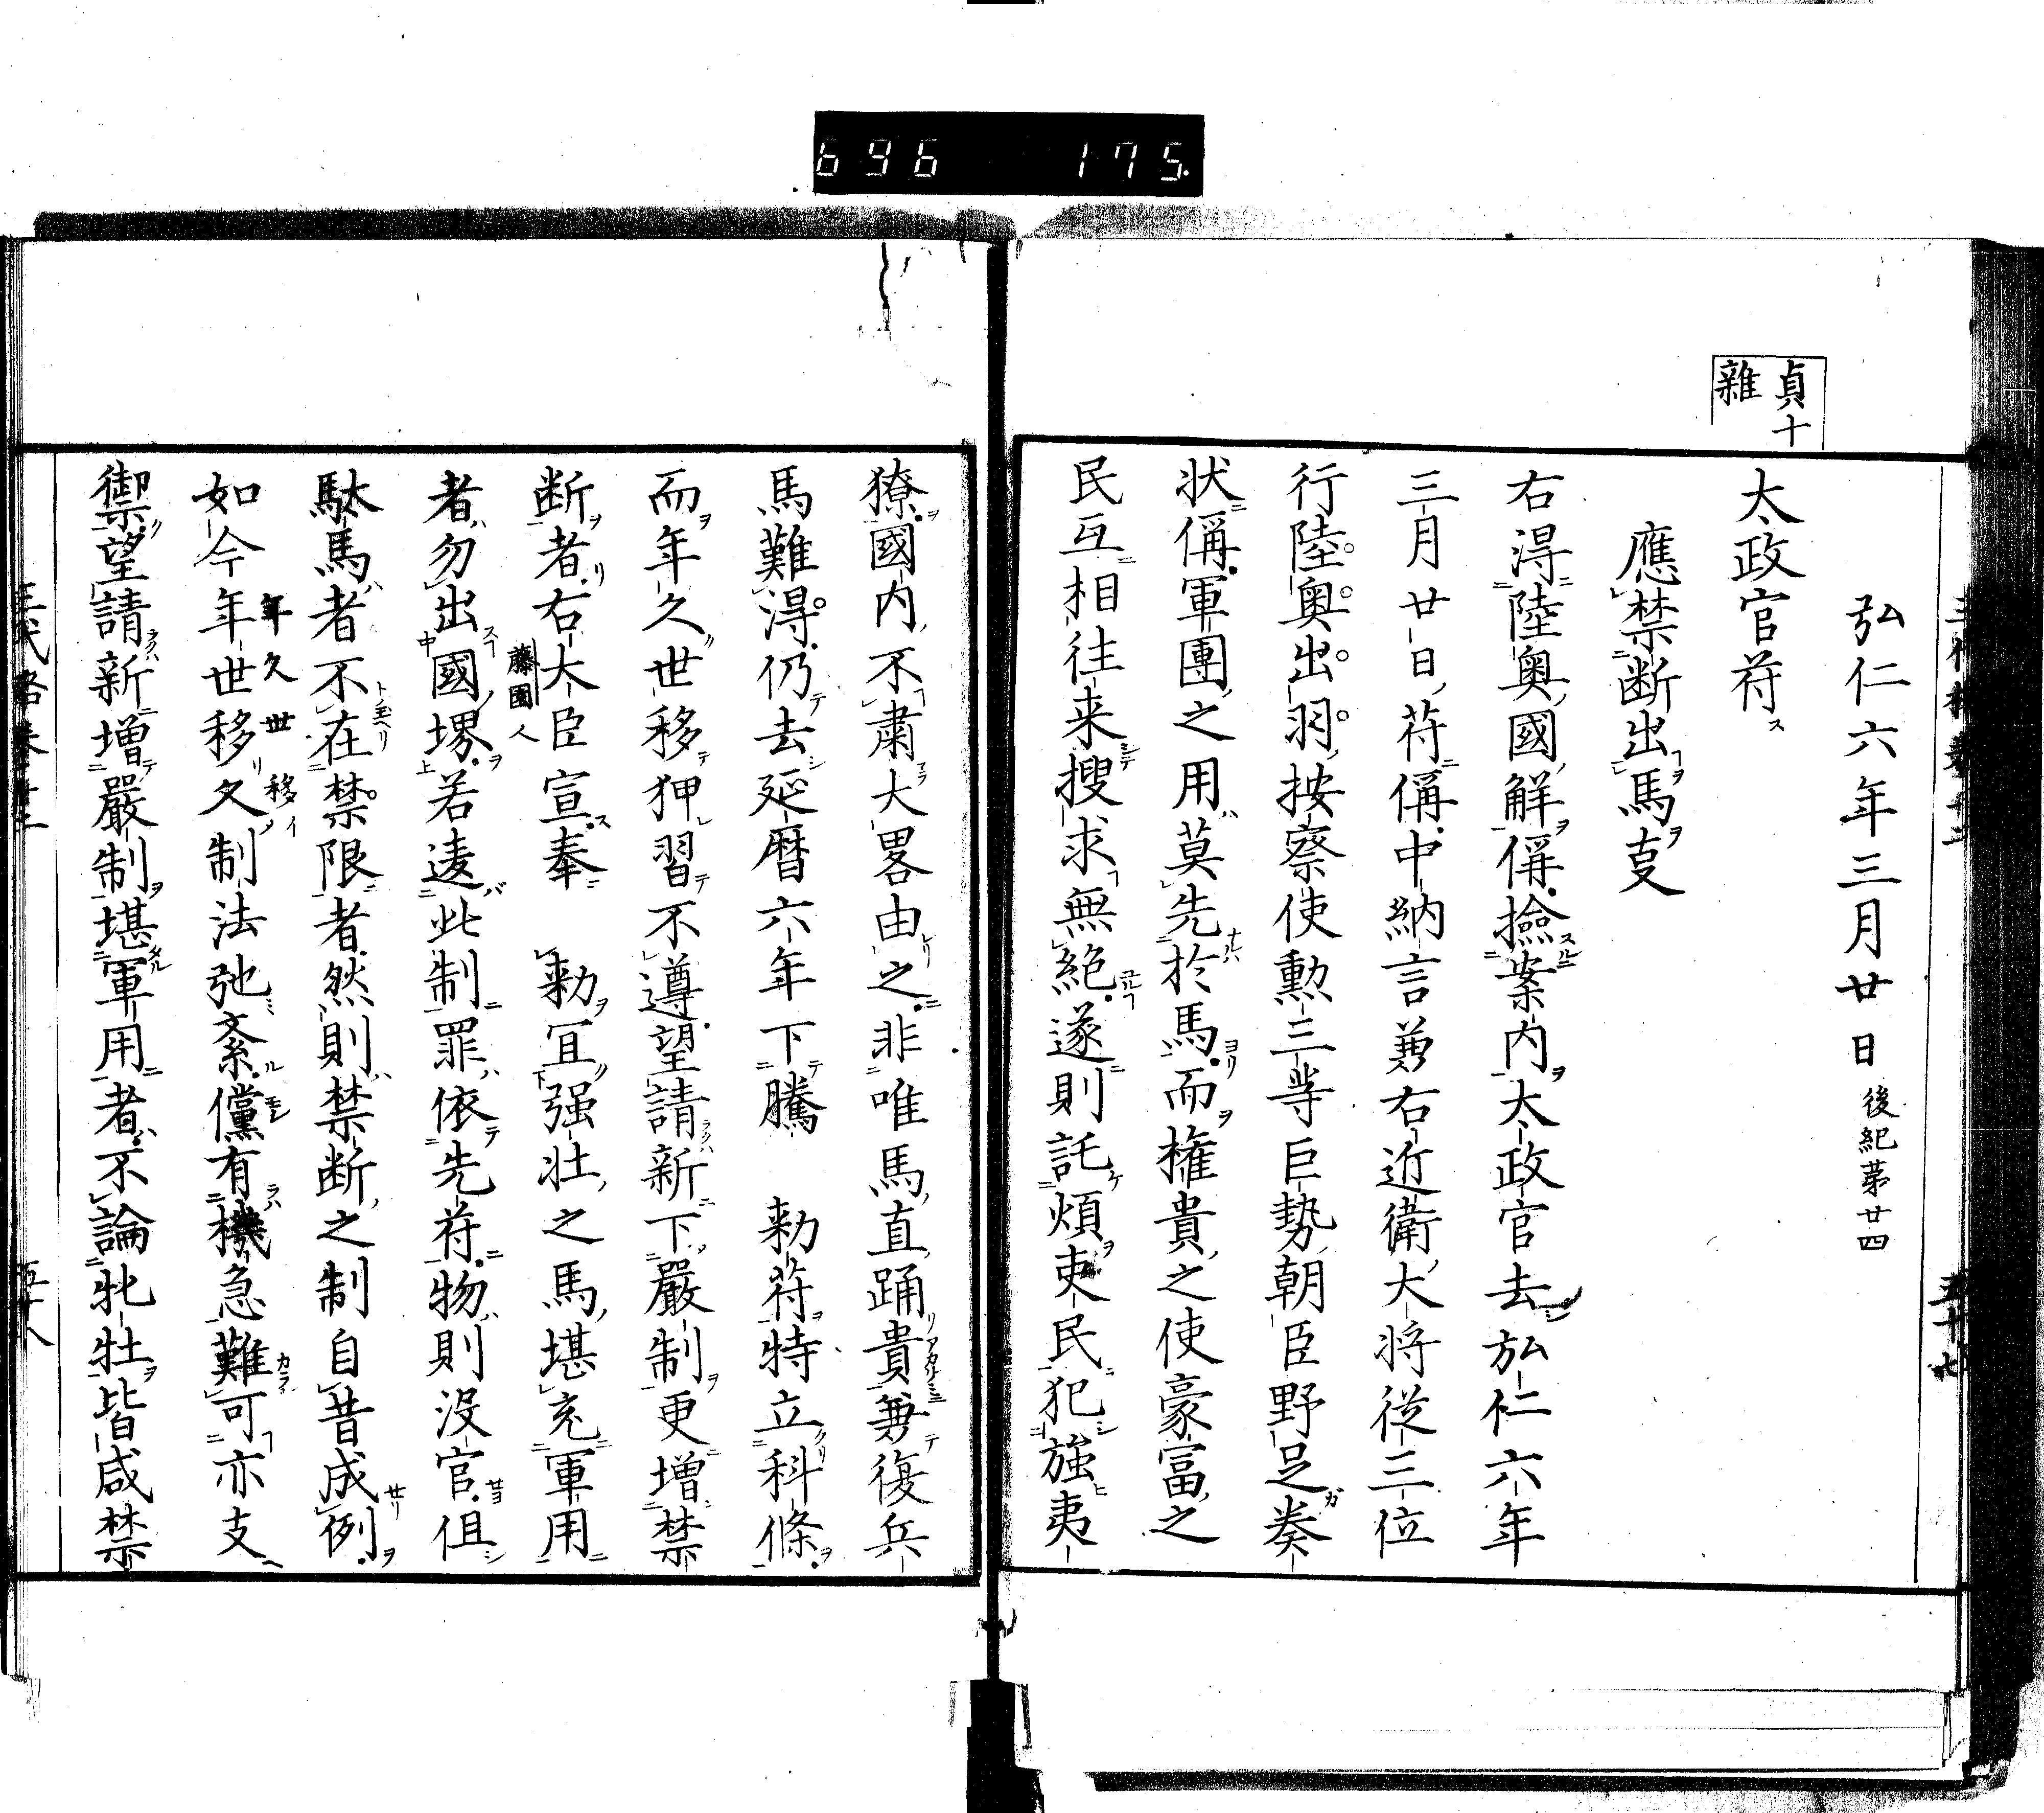 696 175.
弘仁六年三月廿日 後紀第廿四
貞十
雜
太政官符
應禁断出馬𫝆
右得陸奥國解偁撿案内太政官去弘仁六年
三月廿日符偁中納言兼右近衛大将従三位
行陸奥出羽按察使勲三等巨勢朝臣野足奏
状偁軍團之用莫先於馬而權貴之使豪富之
民互相往来搜求無絶遂則託煩吏民犯強夷
獠國内不肅大畧由之非唯馬直踊貴兼復兵
馬難得仍去延暦六年下騰 勅符特立科條
而年久世移狎習不遵望請新下嚴制更増禁
断者右大臣宣奉 勅冝强壮之馬堪充軍用
藤園人
者勿出國堺若違此制罪依先符物則没官但
駄馬者不在禁限者然則禁断之制自昔成例
如今年世移久制法弛紊儻有機急難可亦支
年久世移イ
禦望請新増嚴制堪軍用者不論牝牡皆咸禁